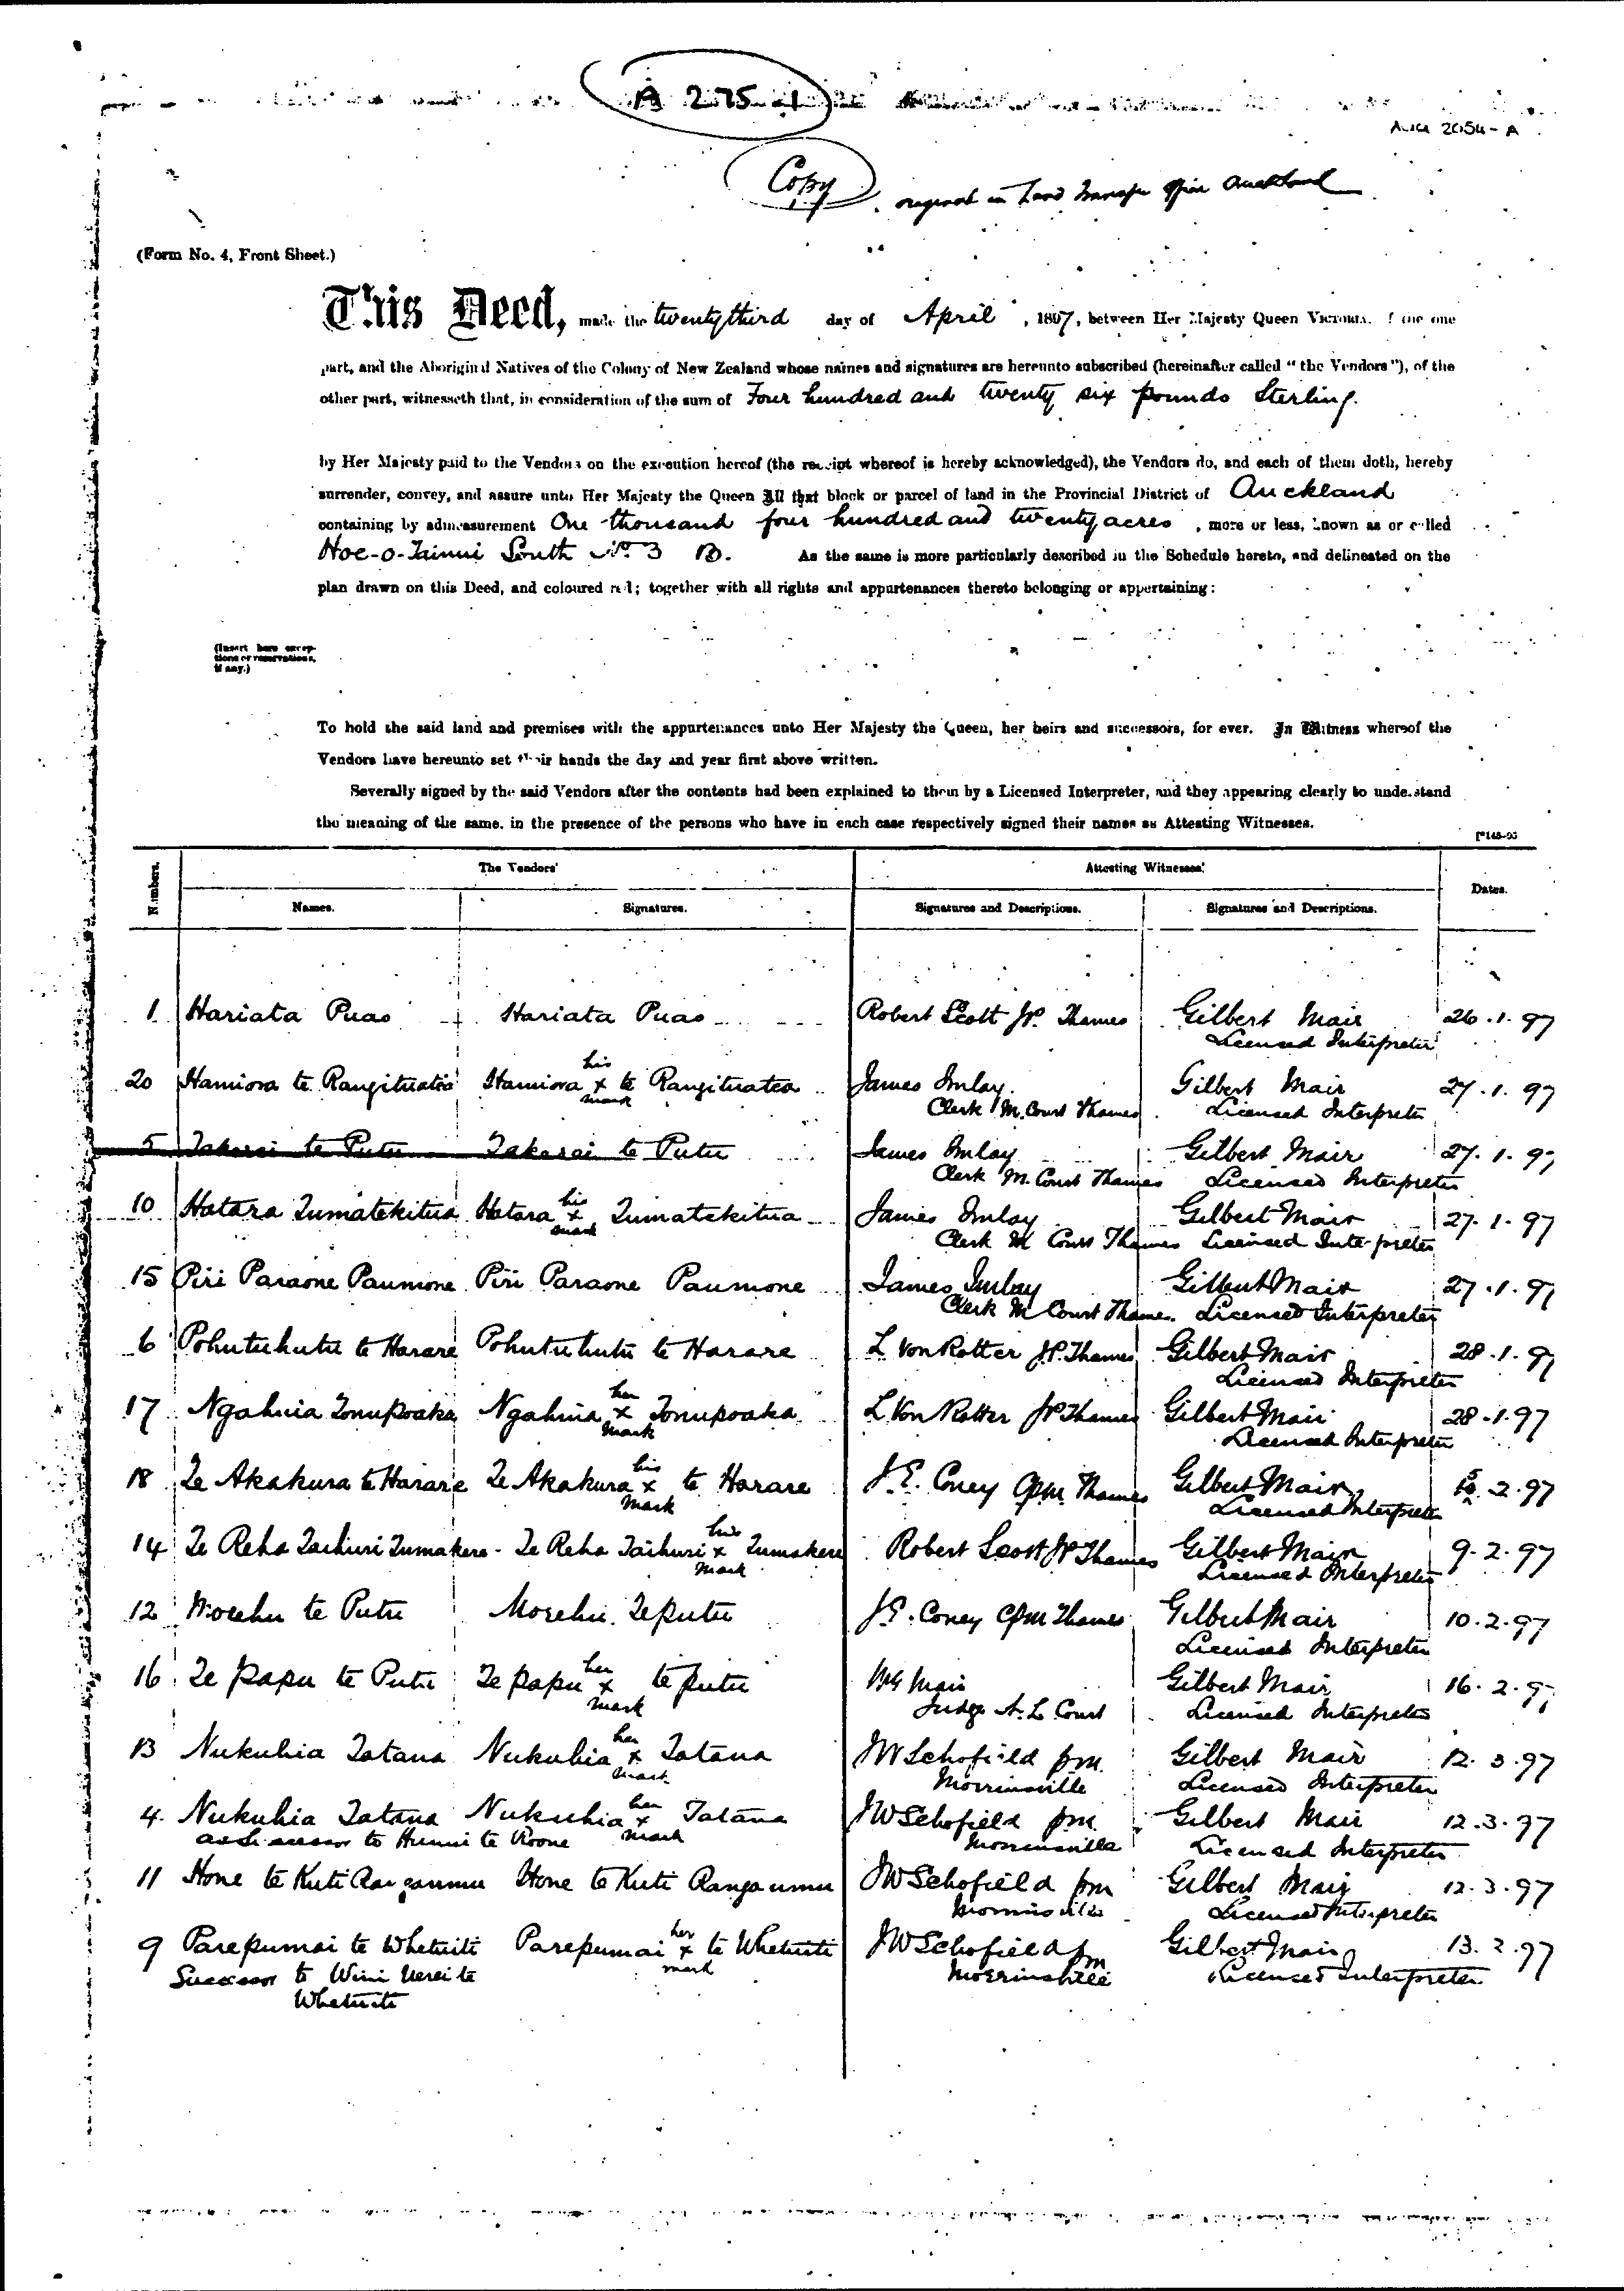 A 275
AUCK 2054-A
Copy. original in Land Transfer Office Auckland
(Form No. 4, Front Sheet.)
This Deed, made the twenty third day of April, 1897, between Her Majesty Queen Victoria, of the one
part, and the Aboriginal Natives of the Colony of New Zealand whose names and signatures are hereunto subscribed (hereinafter called "the Vendors"), of the
other part, witnesseth that, in consideration of the sum of Four hundred and twenty six pounds Sterling.
by Her Majesty paid to the Vendors on the execution hereof (the receipt whereof is hereby acknowledged), the Vendors do, and each of them doth, hereby
surrender, convey, and assure unto Her Majesty the Queen All that block or parcel of land in the Provincial District of Auckland
containing by admeasurement One thousand four hundred and twenty acres, more or less, known as or called
Hoe-o-Tainui South No 3 B. As the same is more particularly described in the Schedule hereto, and delineated on the
plan drawn on this Deed, and coloured red; together with all rights and appurtenances thereto belonging or appertaining:
(Insert here excep-
tions or reservations,
if any.)
To hold the said land and premises with the appurtenances unto Her Majesty the Queen, her heirs and successors, for ever. In Witness whereof the
Vendors have hereunto set their hands the day and year first above written.
Severally signed by the said Vendors after the contents had been explained to them by a Licensed Interpreter, and they appearing clearly to understand
the meaning of the same, in the presence of the persons who have in each case respectively signed their names as Attesting Witnesses.
Numbers. The Vendors' Attesting Witnesses' Dates.
Names. Signatures. Signatures and Descriptions. Signatures and Descriptions.
1 Hariata Puao Hariata Puao Robert Scott JP. Thames Gilbert Mair 26.1.97
Licensed Interpreter
his
20 Hamiora te Rangituatea Hamiora x te Rangituatea James Imlay Gilbert Mair 27.1.97
mark Clerk M. Court Thames Licensed Interpreter
5 Takerei te Putu Takerei te Putu James Imlay Gilbert Mair 27.1.97
Clerk M. Court Thames Licensed Interpreter
his
10 Hatara Tumatekitua Hatara x Tumatekitua James Imlay Gilbert Mair 27.1.97
mark Clerk M Court Thames Licensed Interpreter
15 Piri Paraone Paumone Piri Paraone Paumone James Imlay Gilbert Mair 27.1.97
Clerk M Court Thames. Licensed Interpreter
6 Pohutuhutu te Harare Pohutuhutu te Harare L Von Rotter J.P. Thames Gilbert Mair 28.1.97
Licensed Interpreter
her
17 Ngahuia Tonupoaka Ngahuia x Tonupoaka L Von Rotter JP Thames Gilbert Mair 28.1.97
mark Licensed Interpreter
his
18 Te Akakura te Harare Te Akakura x te Harare J.E. Coney CPM. Thames Gilbert Mair 2.97
mark Licensed Interpreter
his
14 Te Reha Taihuri Tumakere - Te Reha Taihuri x Tumakere Robert Scott JP Thames Gilbert Mair 9.2.97
mark Licensed Interpreter
12 Morehu te Putu Morehu Teputu J.E. Coney CPM Thames Gilbert Mair 10.2.97
Licensed Interpreter
her
16 Te papu te Putu Te papu x te putu WG Mair Gilbert Mair 16.2.97
mark Judge N.L Court Licensed Interpreter
her
13 Nukuhia Tatana Nukuhia x Tatana JW Schofield pm. Gilbert Mair 12.3.97
mark Morrinsville Licensed Interpreter
her
4. Nukuhia Tatana Nukuhia x Tatana JW Schofield pm. Gilbert Mair 12.3.97
as successor to te Roone mark Morrinsville Licensed Interpreter
11 Hone te Kuti Rangaumu Hone te Kuti Rangaumu JW Schofield pm Gilbert Mair 12.3.97
Morrinsville Licensed Interpreter
her
9 Parepumai te Whetuite Parepumai x te Whetuite JW Schofield pm Gilbert Mair 13.2.97
Successor to Wini te mark Morrinsville Licensed Interpreter
Whetuite